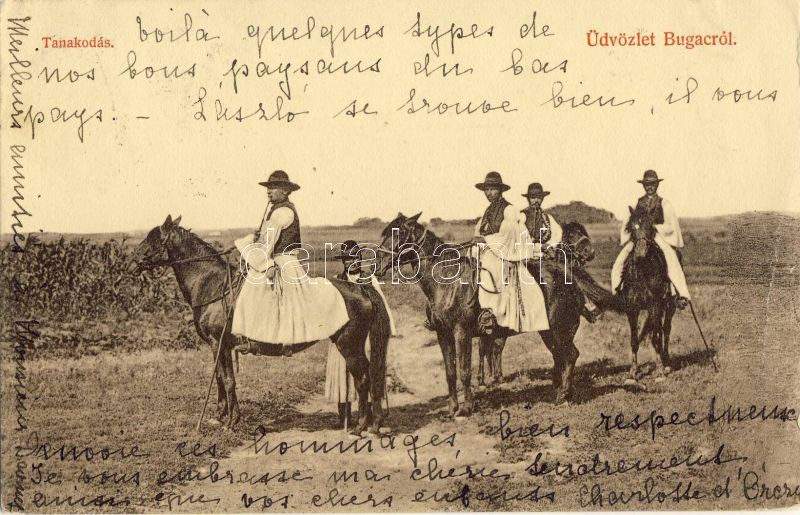 Tanakodás.
Üdvözlet Bugacról.
Voilà quelques types de
nos bons paysans du bas
pays. - László se trouve bien, il vous
envoie ses hommages bien respectueux
Je vous embrasse ma chérie tendrement
ainsi que vos chers enfants Charlotte d'Orczy
Meilleurs amitiés à Monsieur
darabanth